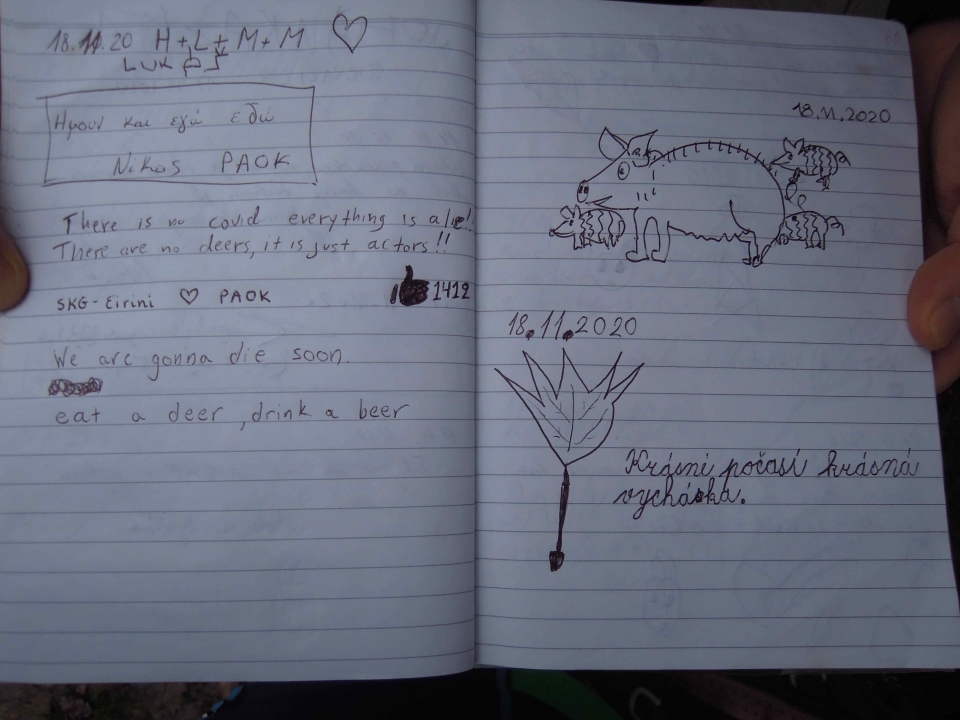 18.11.20 H+L+M+M
LUK
Ημουν και εγώ εδώ
Nikos PAOK
There is no covid everything is a lie!!
There are no deers, it is just actors!!
SKG-Eirini ♡ PAOK 1412
We are gonna die soon.
eat a deer, drink a beer
18.11.2020
18.11.2020
Krásni počasí krásná
vycházka.